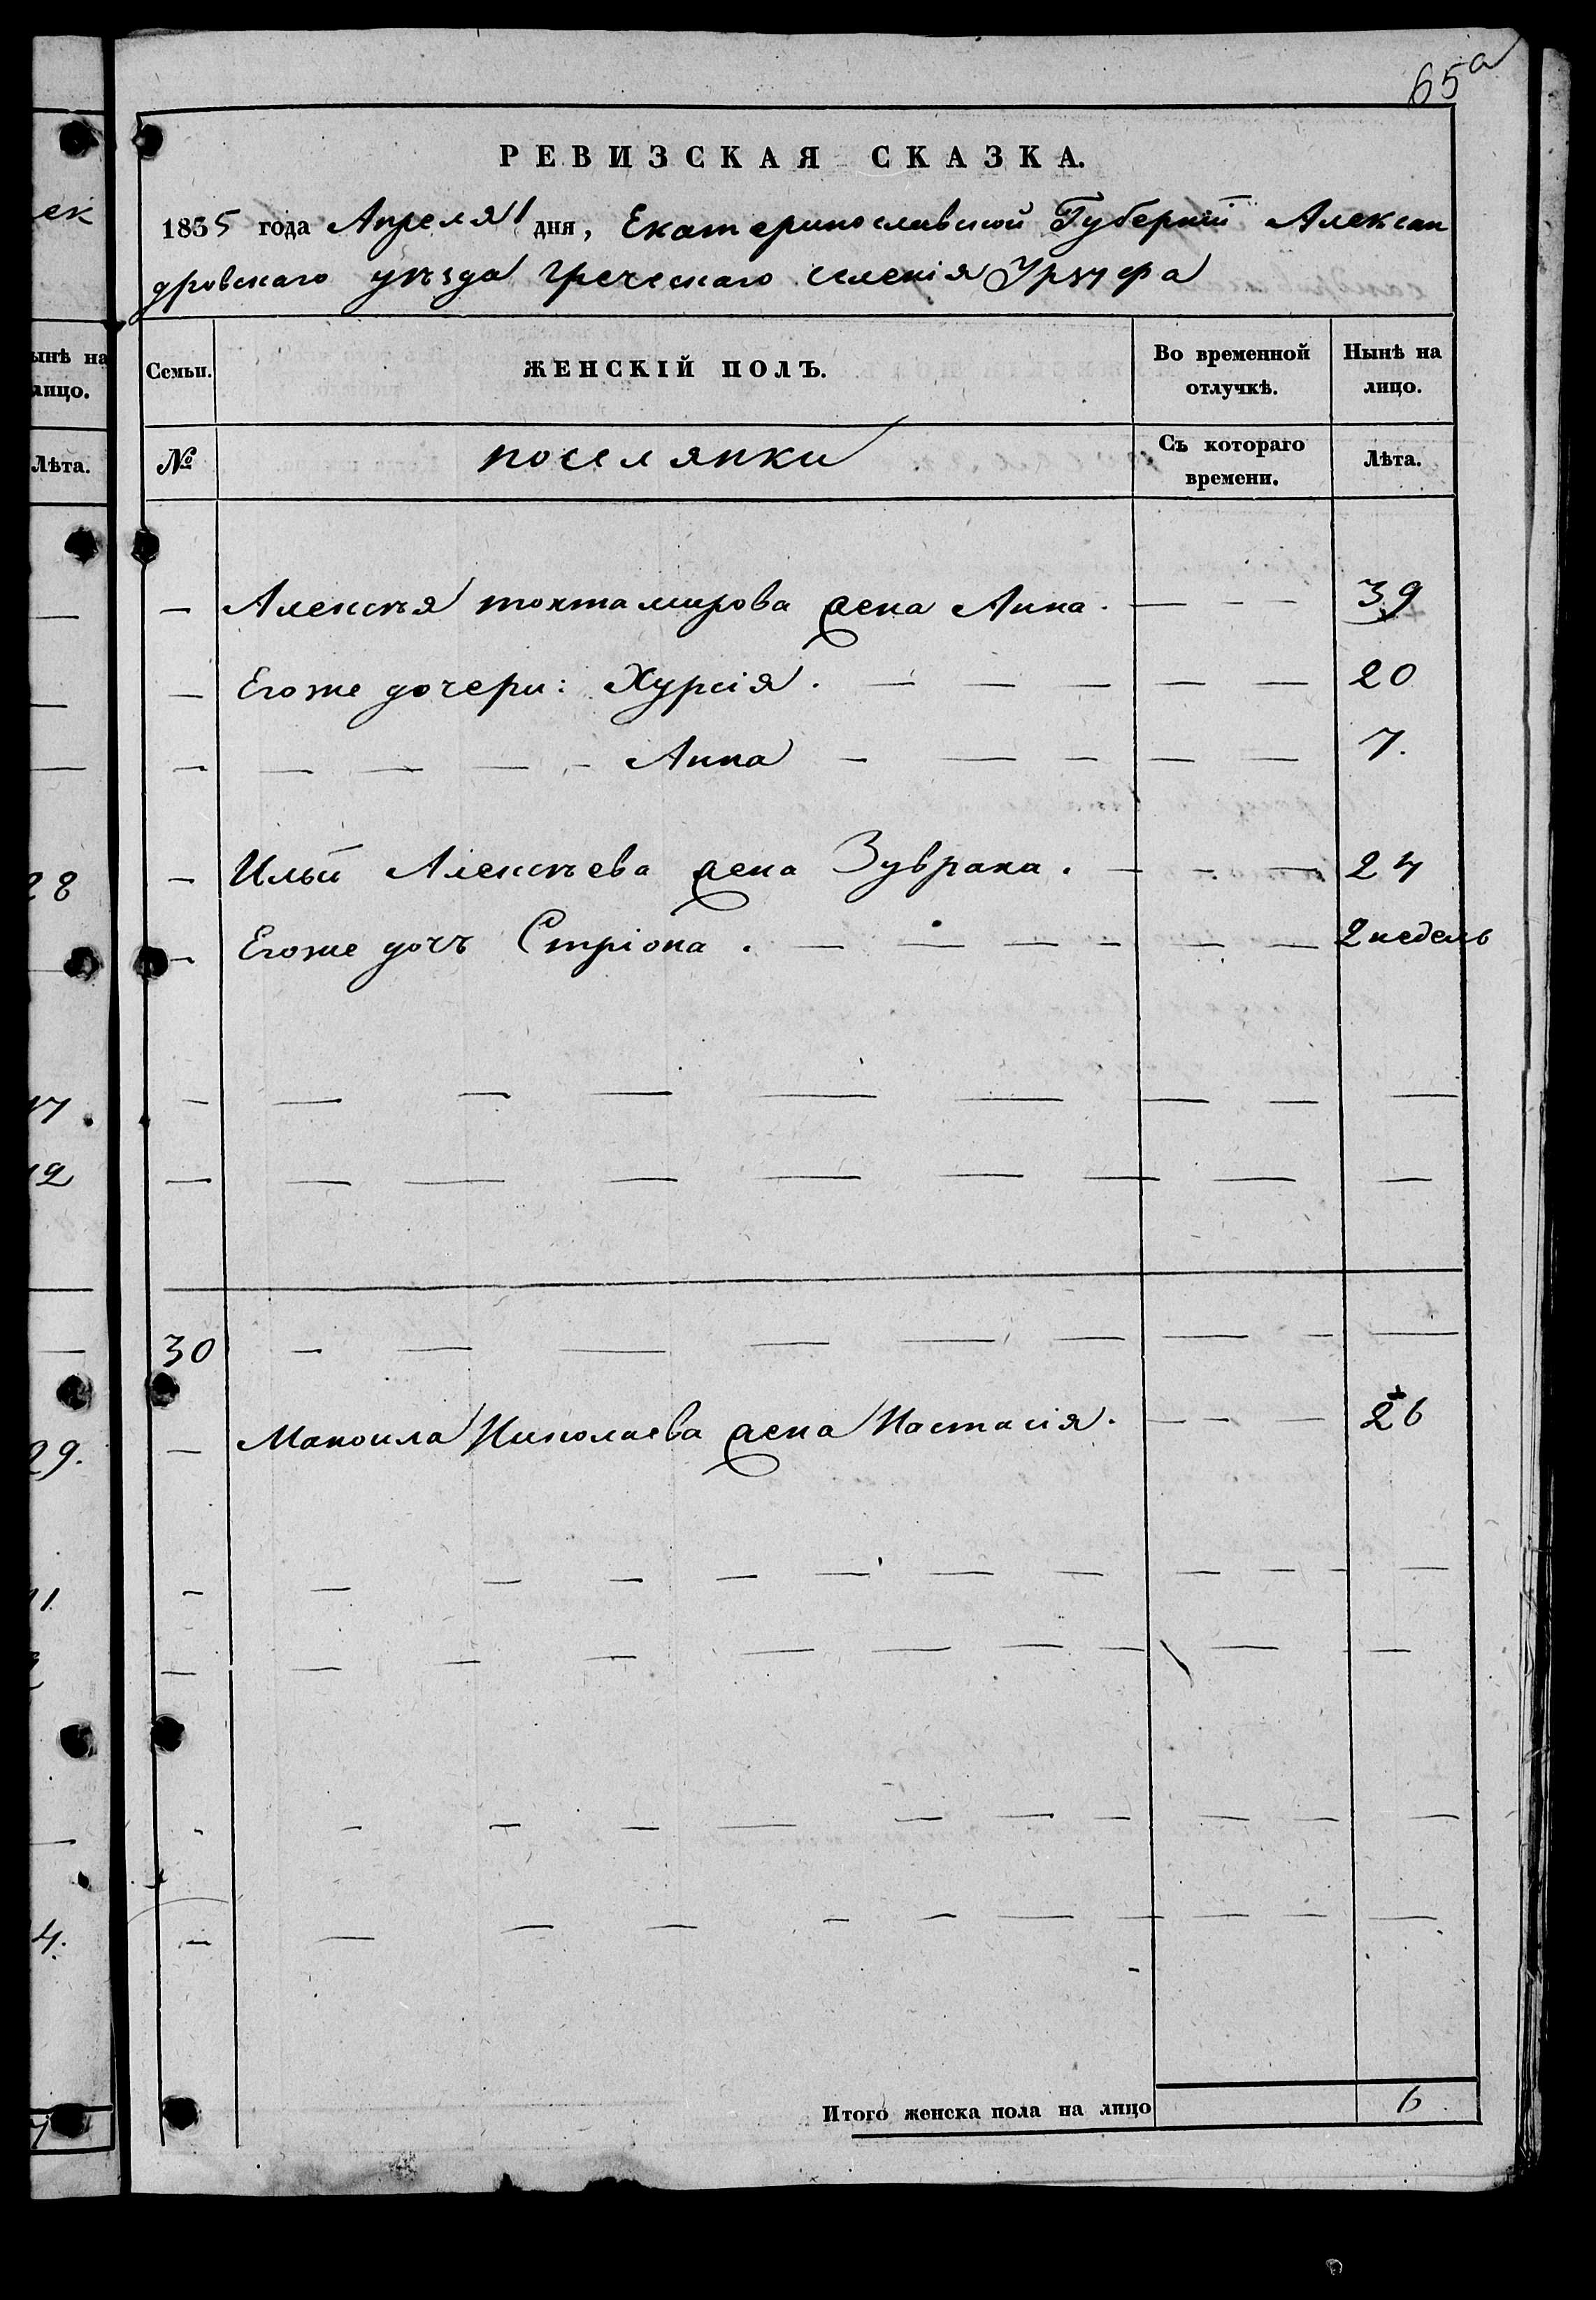 65а
РЕВИЗСКАЯ СКАЗКА.
1835 года Апреля 1 дня, Екатеринославской Губерніи Алексан
дровскаго уѣзда греческаго селенія Урзуфа
ынѣ на
лицо.
Лѣта.
Семьи.
ЖЕНСКІЙ ПОЛЪ.
Во временной
отлучкѣ.
Нынѣ на
лицо.
№
поселянки
Съ котораго
времени.
Лѣта.
— Алексѣя тохтамирова жена Анна. — — — 39
— Егоже дочери: Хурсія. — — — — — 20
— — — — — Анна — — — — — 7.
— Ильи Алексѣева жена Зуврана. — — — 24
— Егоже дочъ Стріона. — — — — — — 2 недель
— — — — — — — — —
— — — — — — — — —
30 — — — — — — — — —
— Маноила Николаева жена Настасія. — — — 26
— — — — — — — — — — — —
— — — — — — — — — —
— — — — — — — — — — —
— — — — — — — — — — —
Итого женска пола на лицо 6